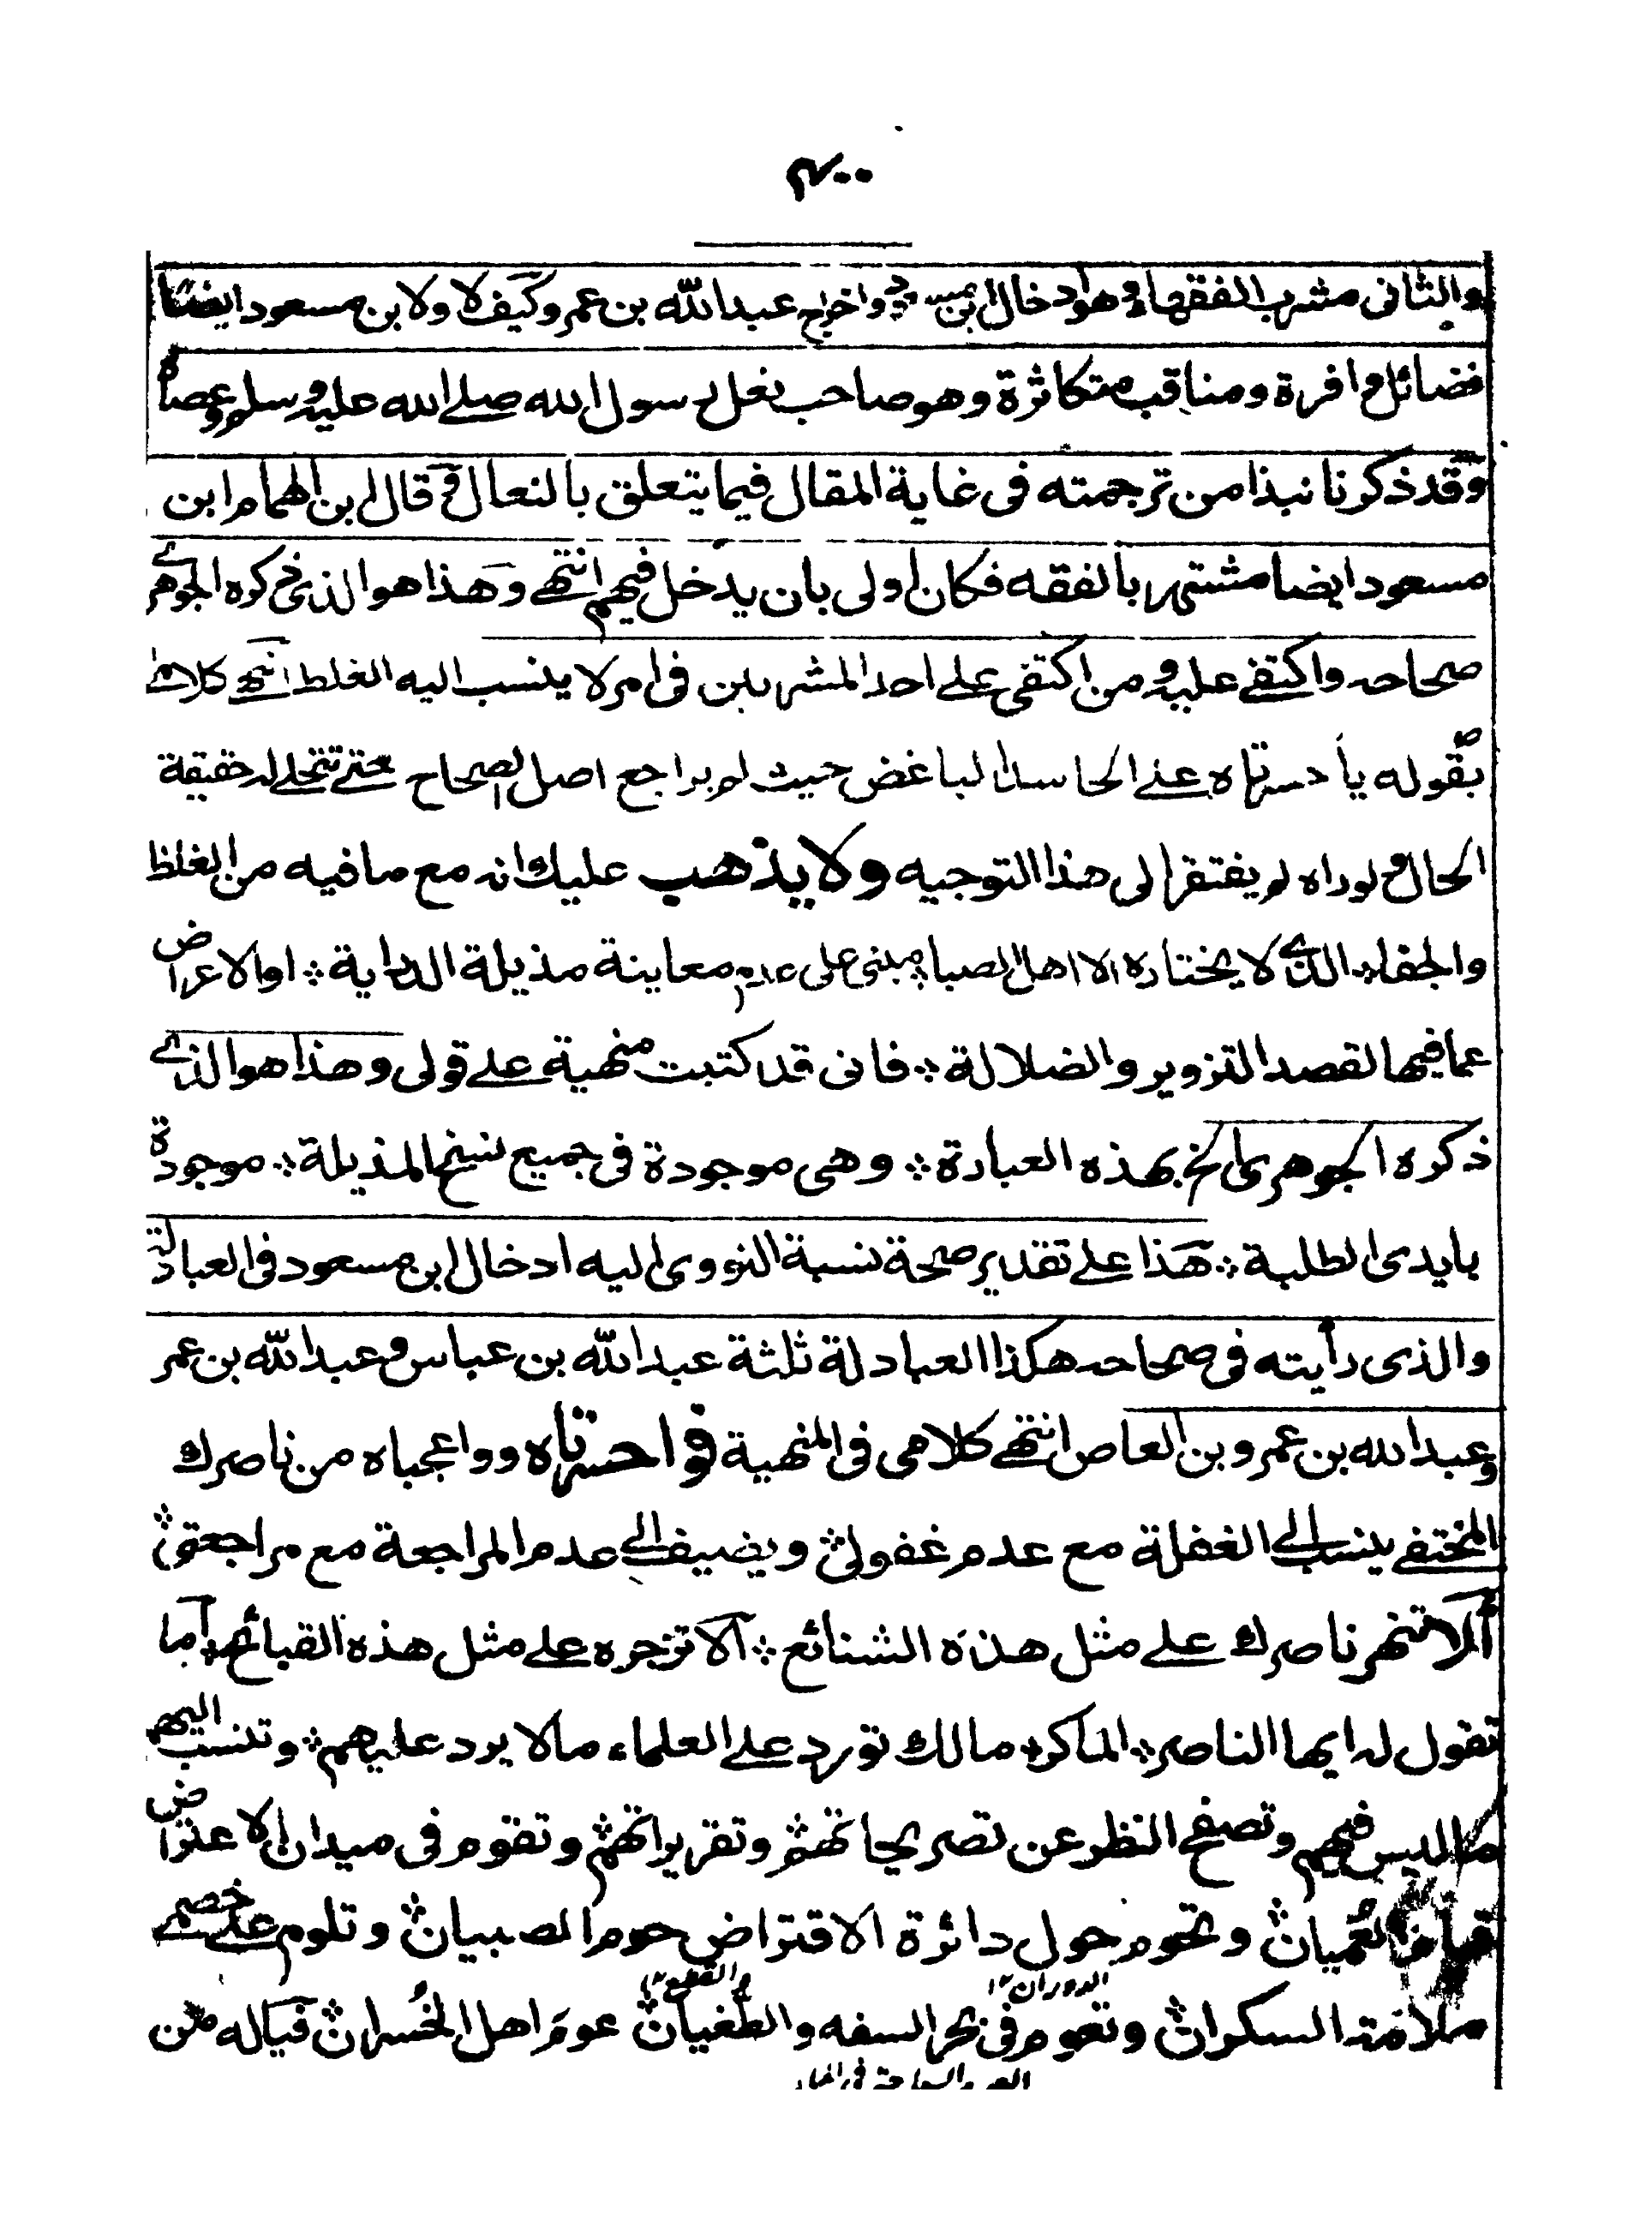 ٤٠٠
والثانى مشرب الفقهاء وهو ادخال ابن مسعود واخراج عبد الله بن عمر وكيف لا ولابن مسعود ايضا
فضائل وافرة ومناقب متكاثرة وهو صاحب نعل رسول الله صلے الله عليه وسلم وعصاه
وقد ذكرنا نبذا من ترجمته فى غاية المقال فيما يتعلق بالنعال وقال ابن الهمام ابن
مسعود ايضا مشتهر بالفقه فكان اولى بان يدخل فيهم انتهے وهذا هو الذى ذكره الجوهرے
صحاحه واكتفے عليه ومن اكتفى على احد المشربين فى امر لا ينسب اليه الغلط انتهے كلامے
بقوله يا حسرتاه على الحاسد الباغض حيث لم يراجع اصل الصحاح حتے تتجلے له حقيقة
الحال ولو راه لم يفتقر الى هذا التوجيه ولا يذهب عليك انه مع ما فيه من الغلظ
والجفاء الذے لا يختاره الا اهل الصبا مبنى على عدم معاينة مذيلة الدراية او الاعراض
عما فيها لقصد التزوير والضلالة فانى قد كتبت منهية علے قولى وهذا هو الذے
ذكره الجوهرى الخ بهذه العبارة وهى موجودة فى جميع نسخ المذيلة موجودة
بايدى الطلبة هذا علے تقدير صحة نسبة النووى اليه ادخال ابن مسعود فى العبادلة
والذى رأيته فى صحاحه هكذا العبادلة ثلثة عبد الله بن عباس وعبد الله بن عمر
وعبد الله بن عمرو بن العاص انتهے كلامى فى المنهية فواحسرتاه وواعجباه من ناصرك
المختفے ينسب الے الغفلة مع عدم غفولى ويضيف الے عدم المراجعة مع مراجعتى
ألا تنهر ناصرك علے مثل هذه الشنائع ألا تزجره علے مثل هذه القبائح أما
تقول له ايها الناصر الماكر مالك تورد علے العلماء ما لا يرد عليهم وتنسب اليهم
ما ليس فيهم وتصفح النظر عن تصريحاتهم وتقريراتهم وتقوم فى ميدان الاعتراض
قيام العميان وتحوم حول دائرة الاقتراض حوم الصبيان وتلوم علے خصمے
ملامة السكران وتعوم فى بحر السفه والطغيان عوم اهل الخسران فياله من
الدوران